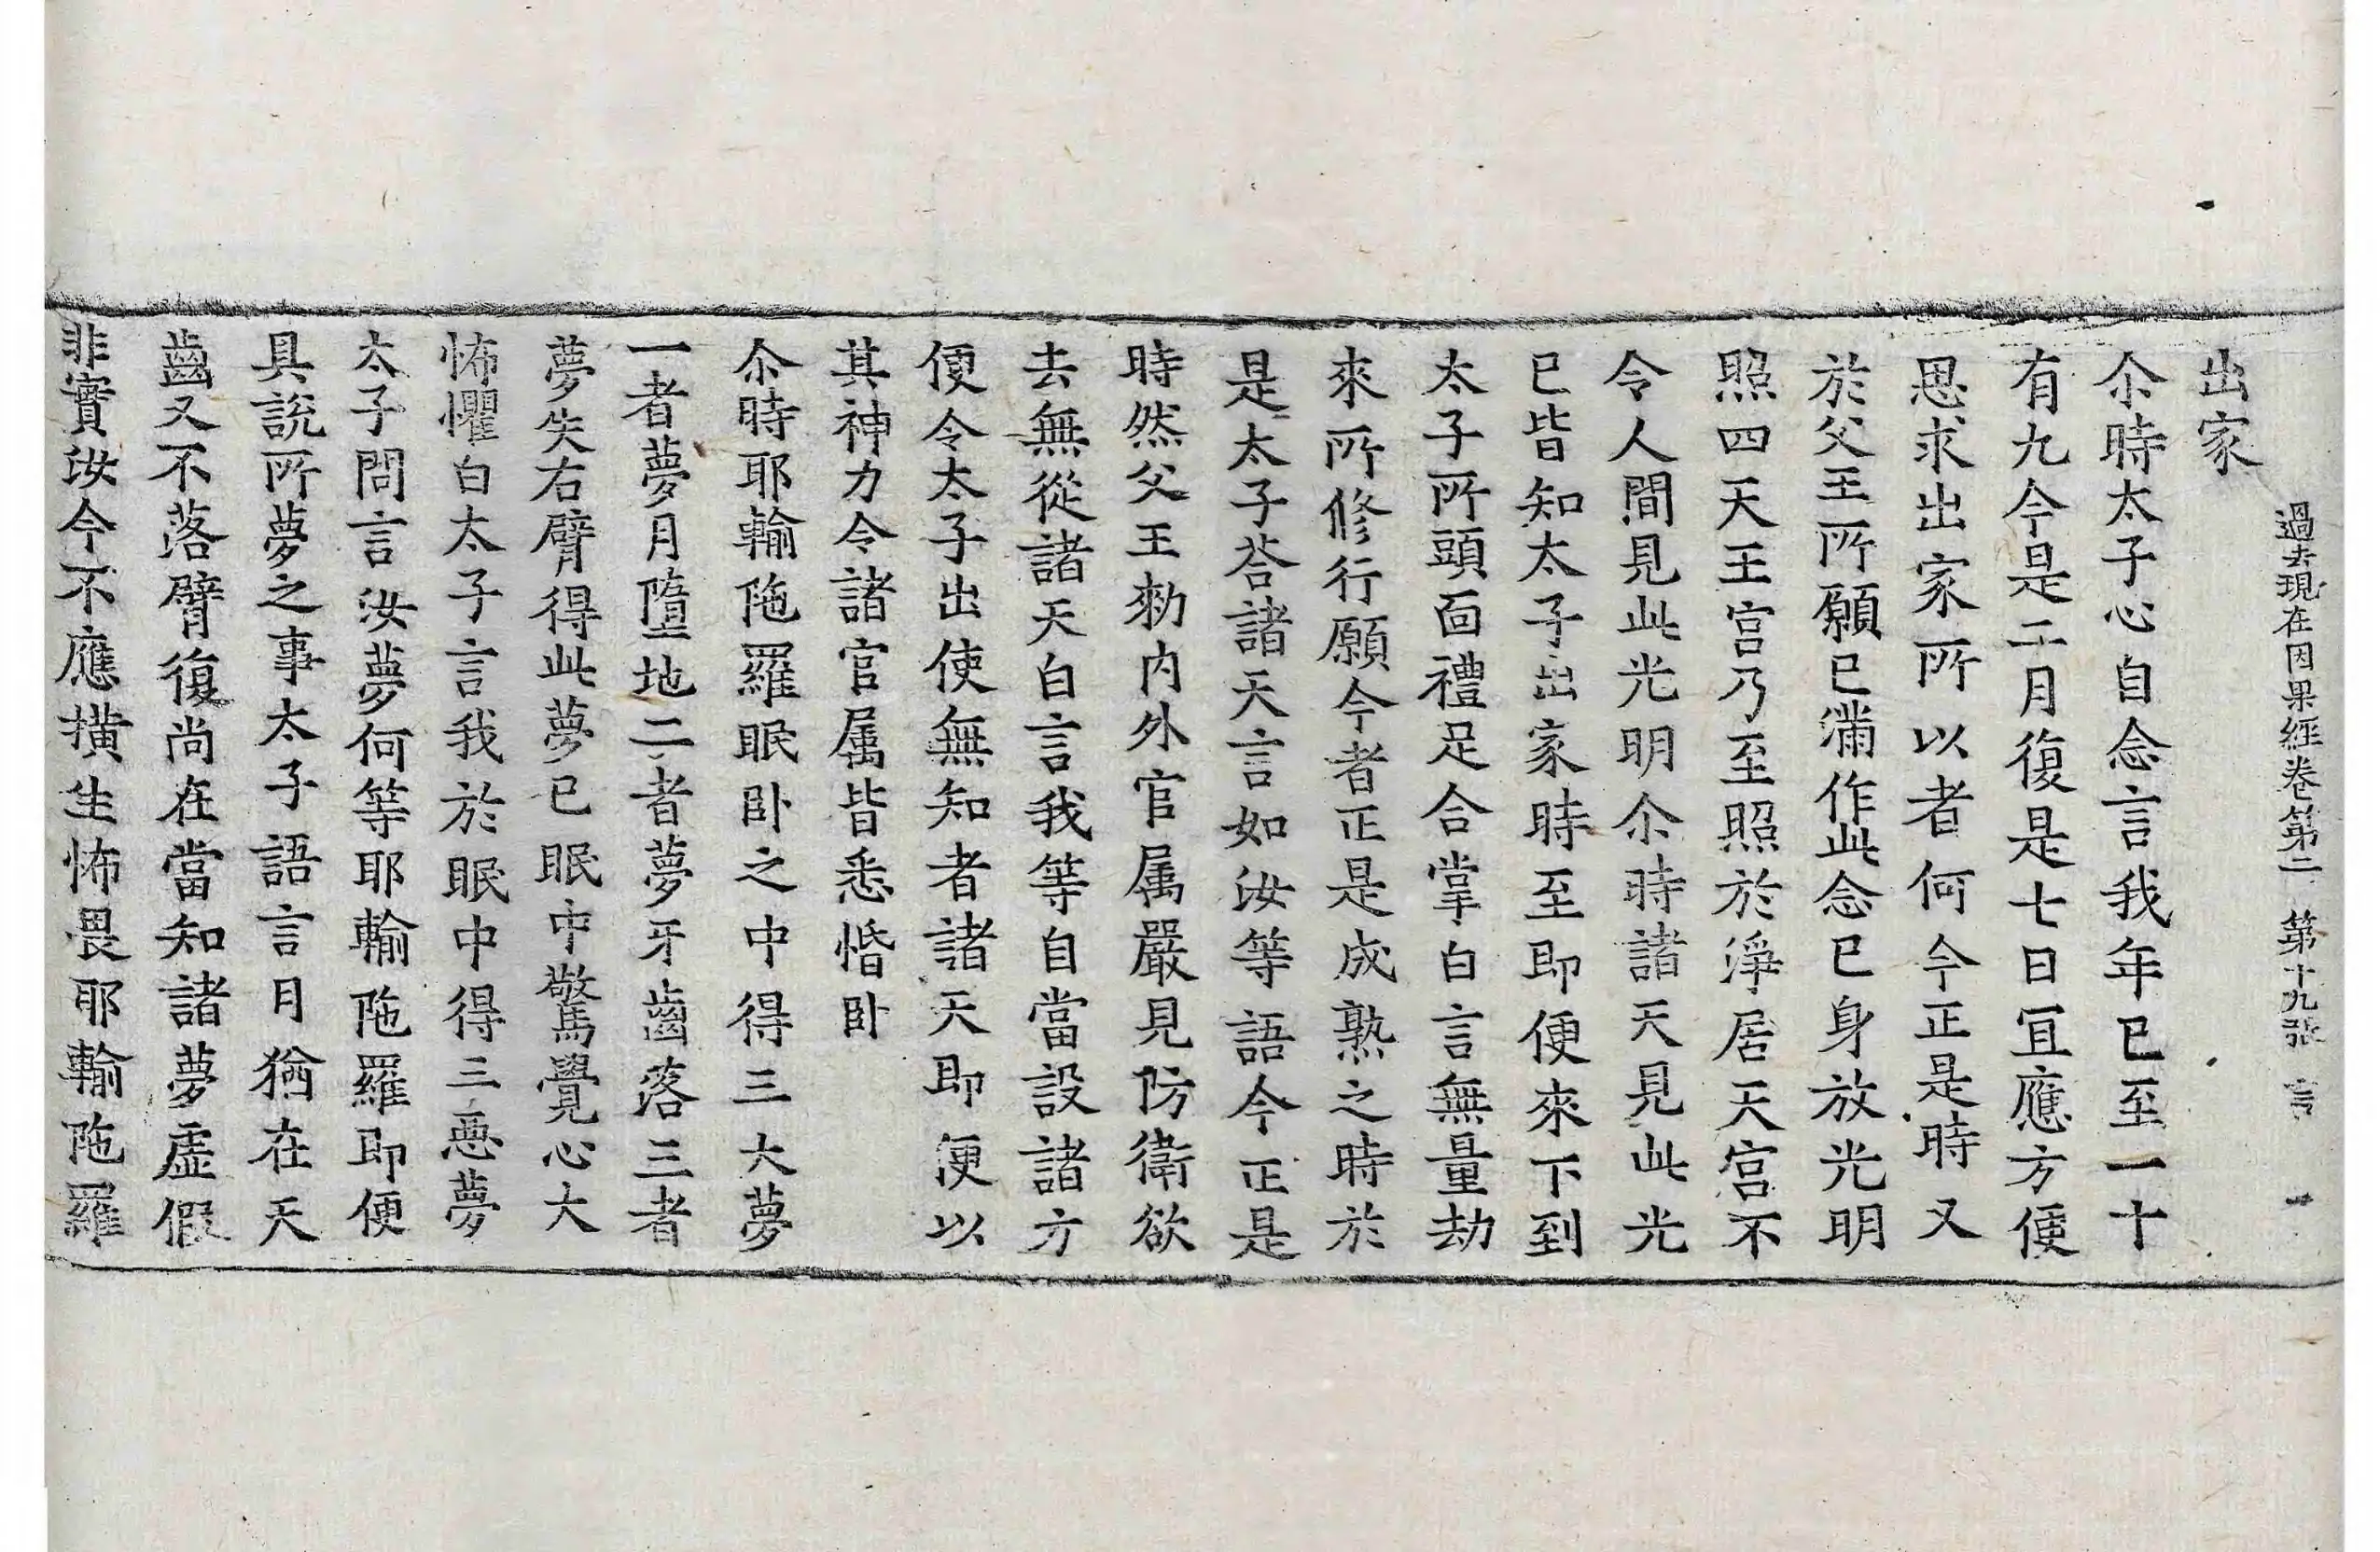 過去現在因果經卷第二 第十九張 言
出家
尒時太子心自念言我年已至一十
有九今是二月復是七日冝應方便
思求出家所以者何今正是時又
於父王所願已滿作此念已身放光明
照四天王宮乃至照於淨居天宮不
令人間見此光明尒時諸天見此光
已皆知太子出家時至即便來下到
太子所頭面禮足合掌白言無量劫
來所修行願今者正是成熟之時於
是太子荅諸天言如汝等語今正是
時然父王勑內外官属嚴見防衛欲
去無從諸天白言我等自當設諸方
便令太子出使無知者諸天即便以
其神力令諸官属皆悉惛卧
尒時耶輸陁羅眠卧之中得三大夢
一者夢月墮地二者夢牙齒落三者
夢失右臂得此夢已眠中驚覺心大
怖懼白太子言我於眠中得三惡夢
太子問言汝夢何等耶輸陁羅即便
具說所夢之事太子語言月猶在天
齒又不落臂復尚在當知諸夢虛假
非實汝今不應撗生怖畏耶輸陁羅